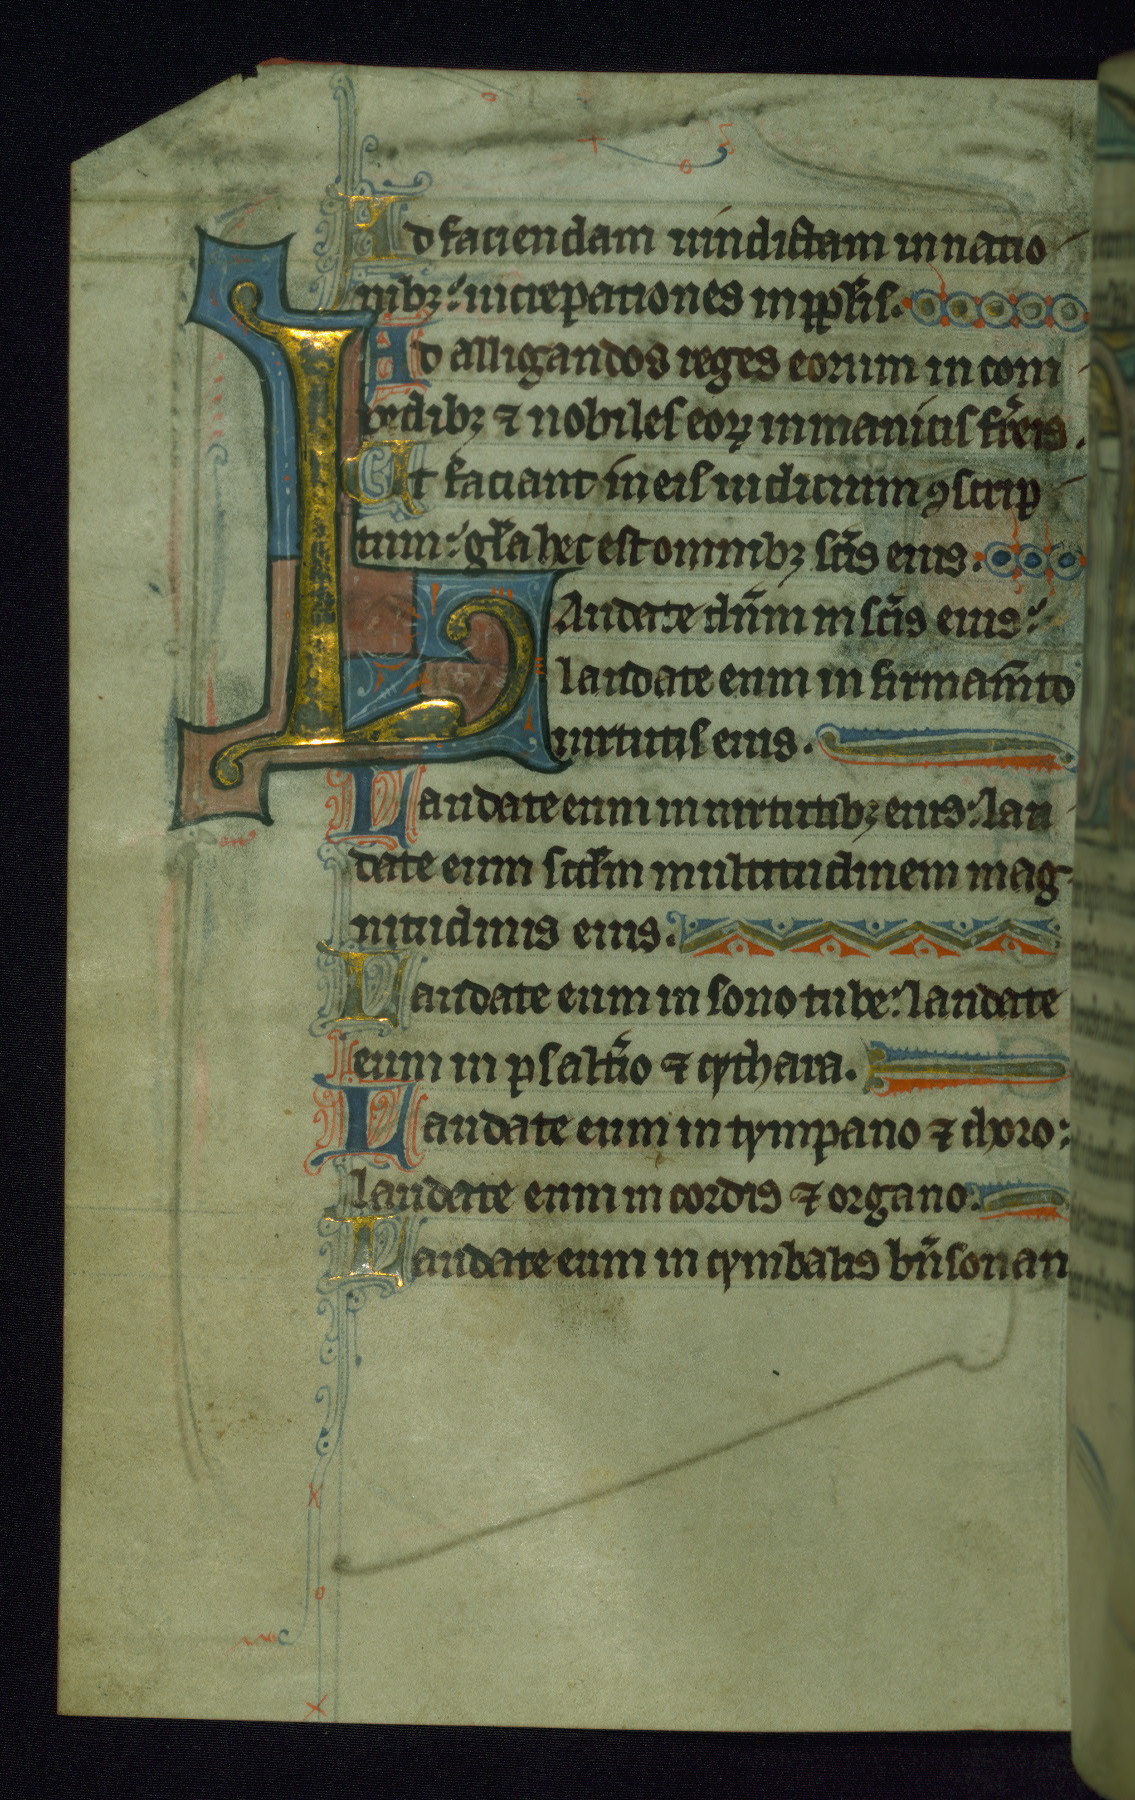 Ad faciendam uindictam in natio
nibꝫ: increpationes in ppl̃is.
Ad alligandos reges eorum in com
pedibꝫ ⁊ nobiles eoꝝ in manicis fr̃eis.
Ut faciant in eis iudicium ꝯscrip
tum: gl̃a hec est omnibꝫ sc̃is eius.
Laudate dñm in sc̃is eius:
laudate eum in firmam̃to
uirtutis eius.
Laudate eum in uirtutibꝫ eius: lau
date eum scd̃m multitudinem mag
nitudinis eius.
Laudate eum in sono tube: laudate
eum in psalt̃io ⁊ cythara.
Laudate eum in tympano ⁊ choro:
laudate eum in cordis ⁊ organo.
Laudate eum in cymbalis bñ sonan